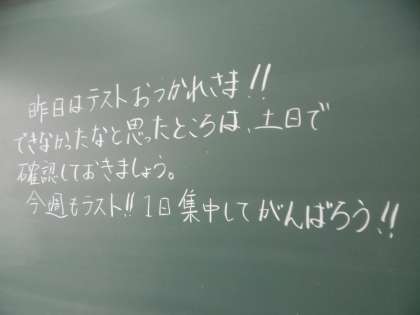 昨日はテストおつかれさま!!
できなかったなと思ったところは、土日で
確認しておきましょう。
今週もラスト!! 1日集中してがんばろう!!